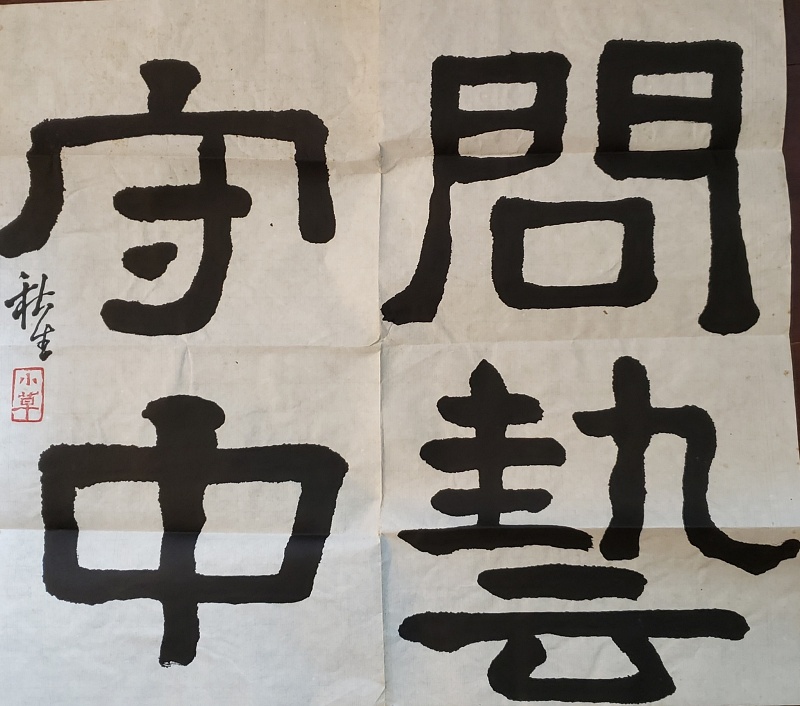 問藝
守中
秋生
小草